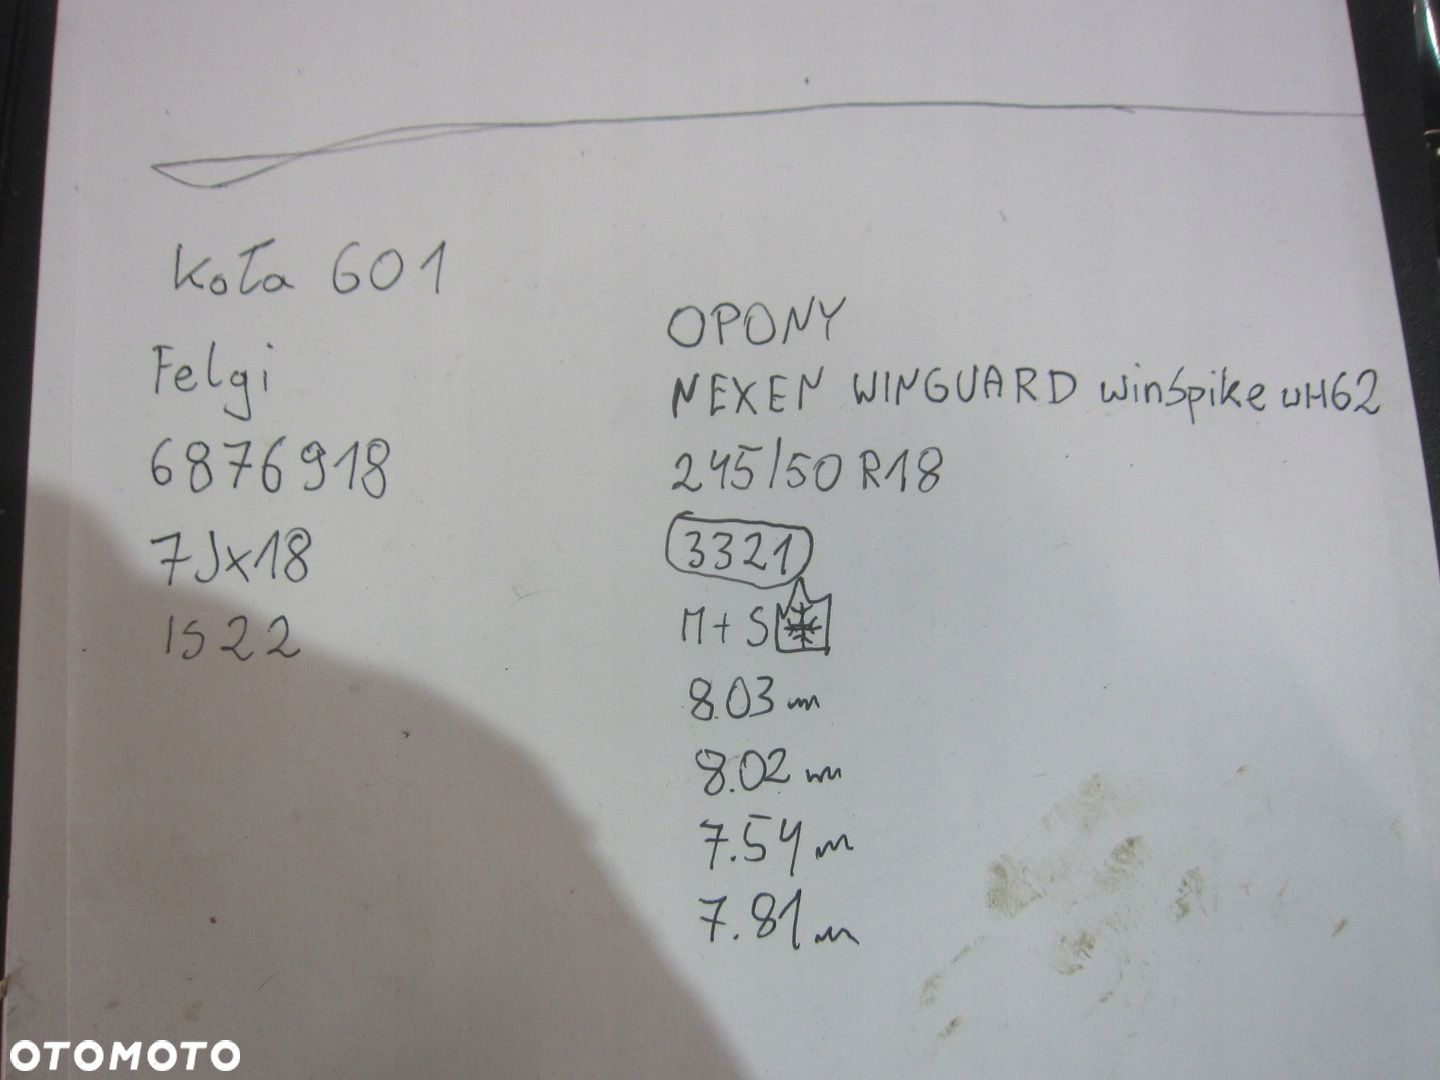 Koła 601
Felgi
6876918
7Jx18
IS22
OPONY
NEXEN WINGUARD winSpike WH62
245/50 R18
3321
M+S
8.03 mm
8.02 mm
7.54 mm
7.81 mm
OTOMOTO